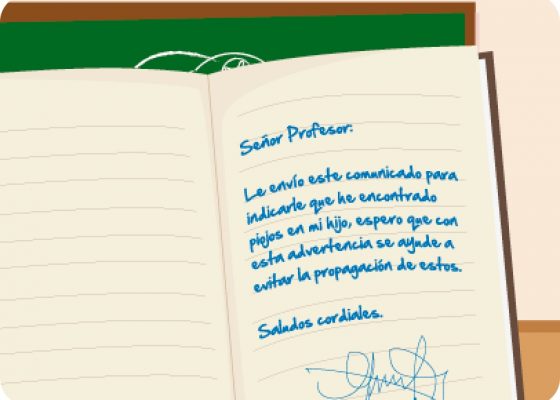 Señor Profesor:
Le envío este comunicado para
indicarle que he encontrado
piojos en mi hijo, espero que con
esta advertencia se ayude a
evitar la propagación de estos.
Saludos cordiales.